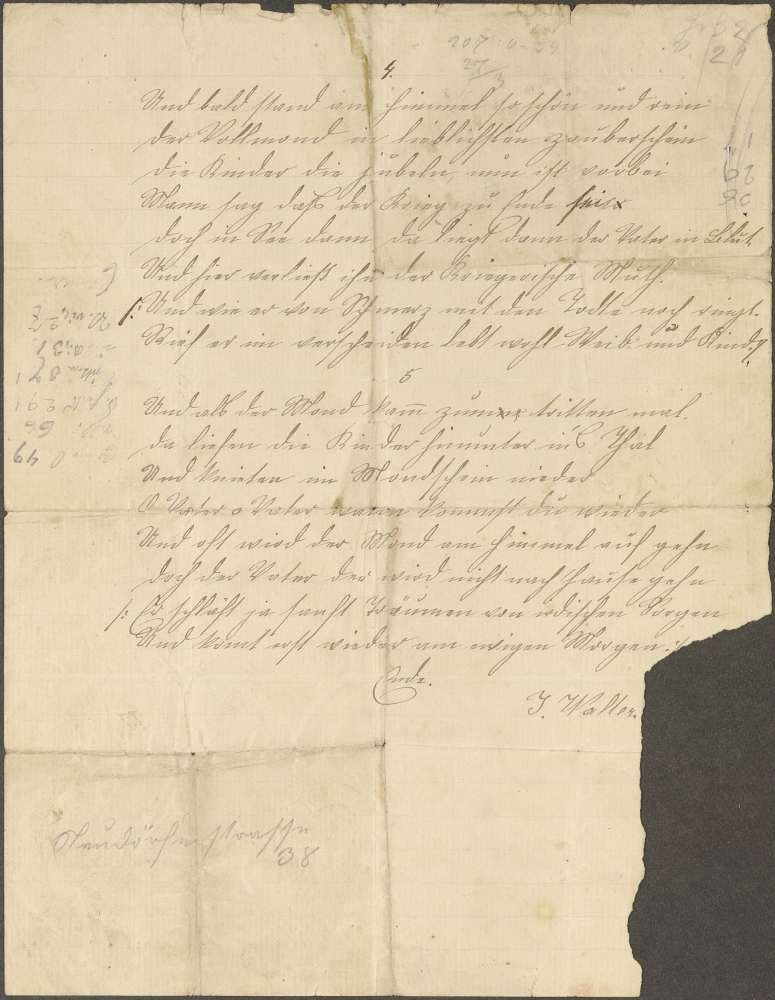 4.
Und bald stand am Himmel so schön und rein
Der Vollmond in lieblichsten zauberschein
Die Kinder die jubeln, nun ist vorbei
Mann sag daß der Krieg zu Ende sei
Doch in See dann da liegt dann der Vater in Blut
Und hier verließ ihn der Kriegerische Muth.
/: Und wie er von Schmerz mit den Todte noch ringt.
Rief er im verscheiden lebt wohl Weib und Kind :/
5
Und als der Mond kam zum tritten mal.
da liefen die Kinder hinunter in's Thal
Und knieten im Mondschein nieder
O Vater o Vater wann kommst du wieder
Und oft wird der Mond am Himmel auf gehn
Doch der Vater der wird nicht nach Hause gehn
/: Er schläft ja sanft Träumen von irdischen Sorgen
Und komt erst wieder am ewigen Morgen :/
Ende.
J. Walter.
Neudörferstrasse
38